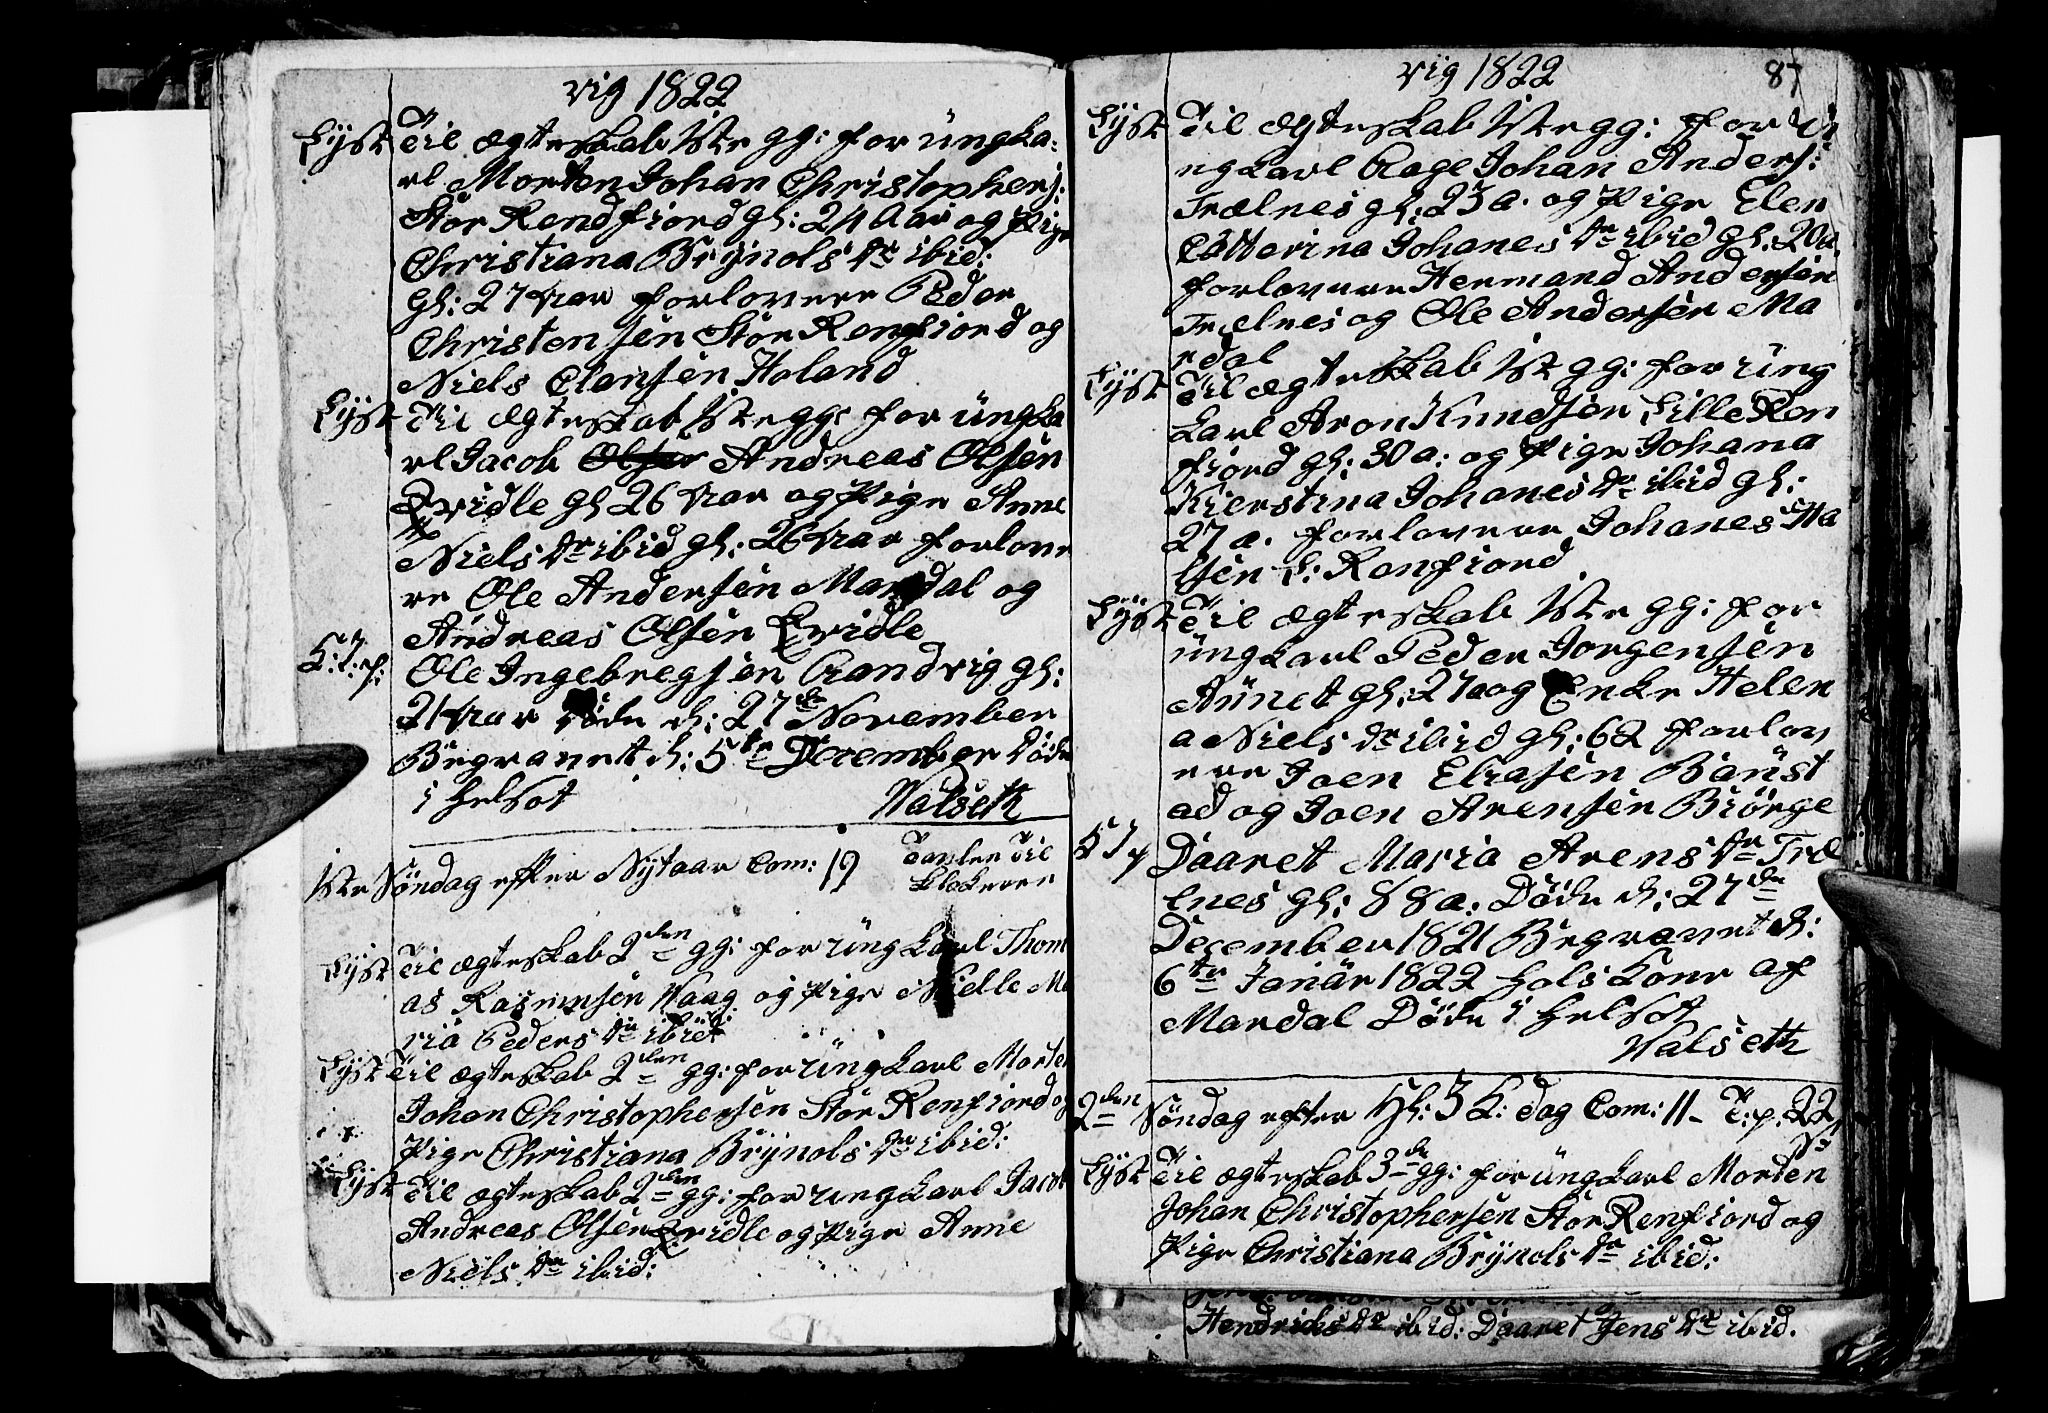 vig 1822
Lyst Til ægteskab 1ste gg: for ungka-
rl Morten Johan Christophers:
Stor Rendfiord gl: 24 Aar og Pige
Christiana Brynols dr ibid:
gl: 27 Aar forlovere Peder
Christensen Stor Renfiord og
Niels Clansen Holand
Lyst Til ægteskab 1ste gg: for ungka
rl Jacob Andreas Olsen
Qvidle gl 26 Aar og Pige Anne
Niels dr ibid gl: 26 Aar forlove
re Ole Andersen Mardal og
Andreas Olsen Qvidle
S: J. p: Ole Ingebregsen Randvig gl:
21 Aar Døde d: 27de November
Begravet d: 5te December Døde
i Helsot Walseth
1ste Søndag efter Nytaar Com: 19 Tavlen Til
Klokeren
Lyst Til ægteskab 2den gg: for ungkarl Thom
as Rasmusen Waag og Pige Nielle Ma
ria Peders dr ibid:
Lyst Til ægteskab 2den gg: for ungkarl Morten
Johan Christophersen Stor Renfiord og
Pige Christiana Brynols dr ibid:
Lyst Til ægteskab 2den gg: for ungkarl Jacob
Andreas Olsen Qvidle og Pige Anne
Niels dr ibid:
vig 1822 87
Lyst Til ægteskab 1ste gg: for u
ngkarl Aage Johan Anders:
Trælnes gl: 23 a. og Pige Elen
Catterina Johanes dr ibid gl: 20 a.
forlovere Hermand Andersen
Trælnes og Ole Andersen Ma
rdal
Lyst Til ægteskab 1ste gg: for ung
karl Aron Knudsen Lille Ren
fiord gl: 30 a: og Pige Johana
Kierstina Johanes dr ibid gl:
27 a. forlovere Johanes Ha
lsen L: Renfiord
Lyst Til ægteskab 1ste gg: for
ungkarl Peder Jorgensen
Aunet gl: 27 a og Enke Helen
a Niels dr ibid gl: 62 forlov
ere Joen Elrasen Baust
ad og Joen Arensen Biørge
S J p Daaret Maria Arens dr Træ
lnes gl: 88 a: Døde d: 27de
December 1821 Begravet d:
6te Januar 1822 hols Kone af
Mardal Døde i Helsot
Walseth
2den Søndag efter Hl: 3 K: dag Com: 11 - T: p: 22
Lyst Til ægteskab 3de gg: for ungkarl Morten
Johan Christophersen Stor Renfiord og
Pige Christiana Brynols dr ibid:
Hendriks dr ibid: Daaret Jens dr ibid.